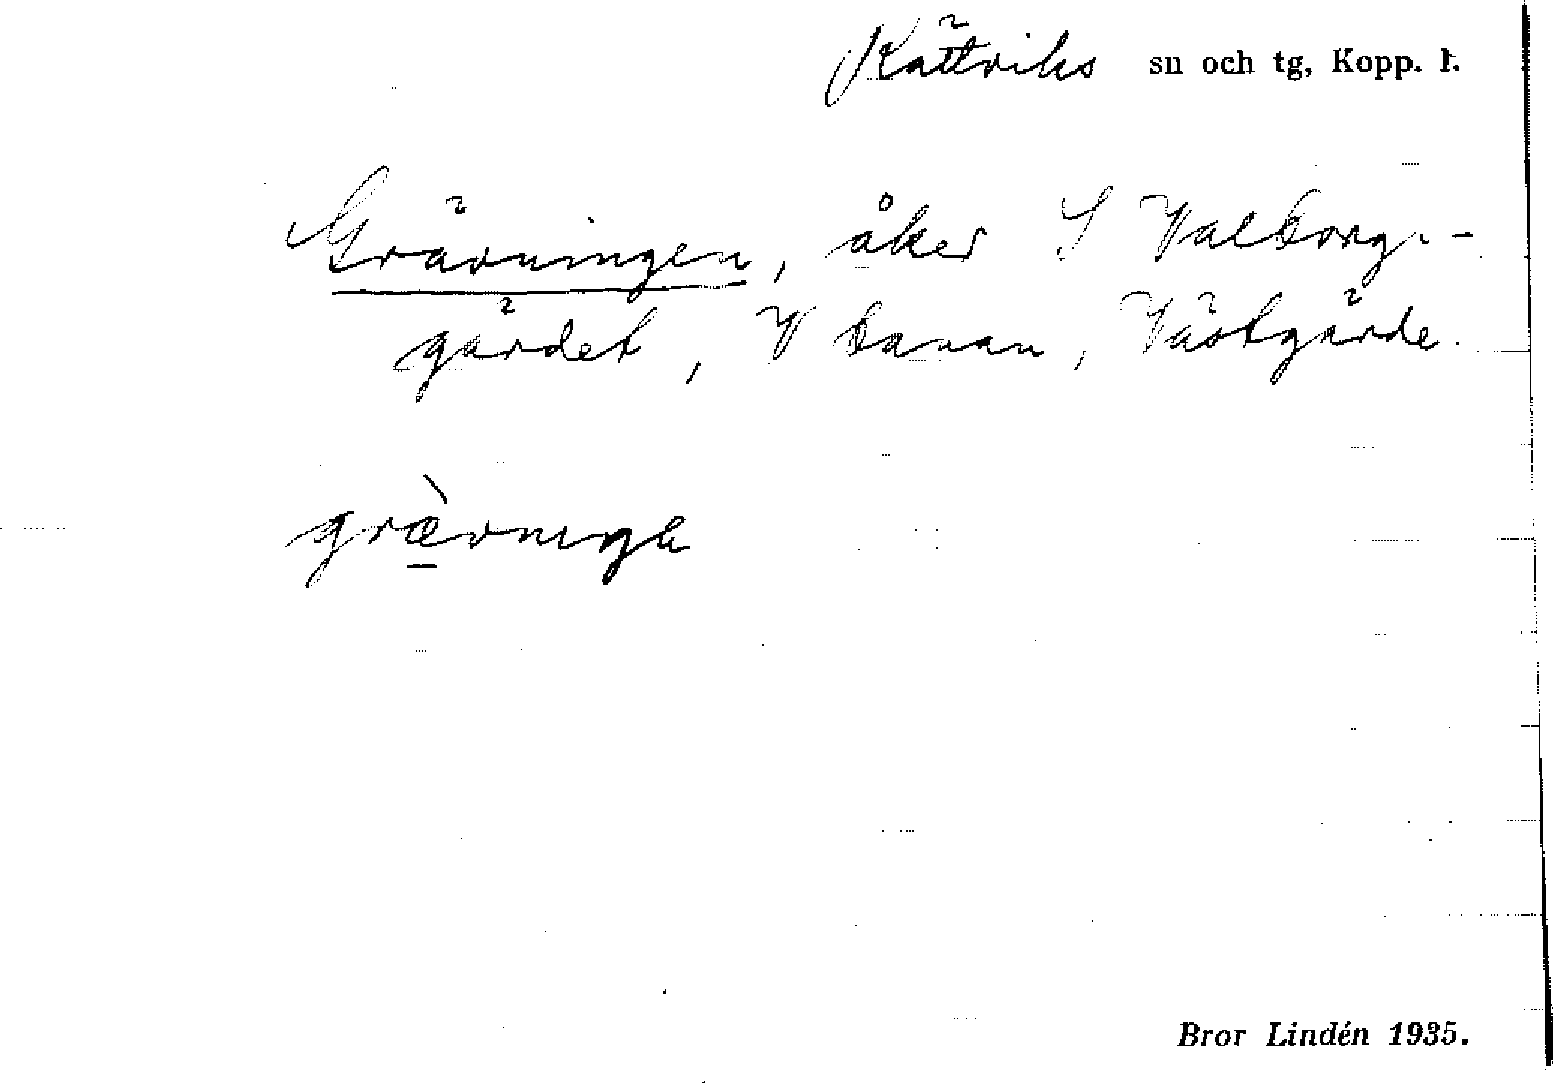 Rättviks sn och tg, Kopp. l.
Grävningen, åker S Valborgs-
gärdet, V banan, Västgärde.
græ̀vnıŋa
Bror Lindén 1935.